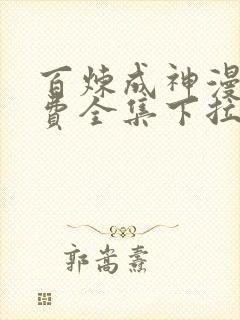 百炼成神漫
费全集下拉
郭嵩焘